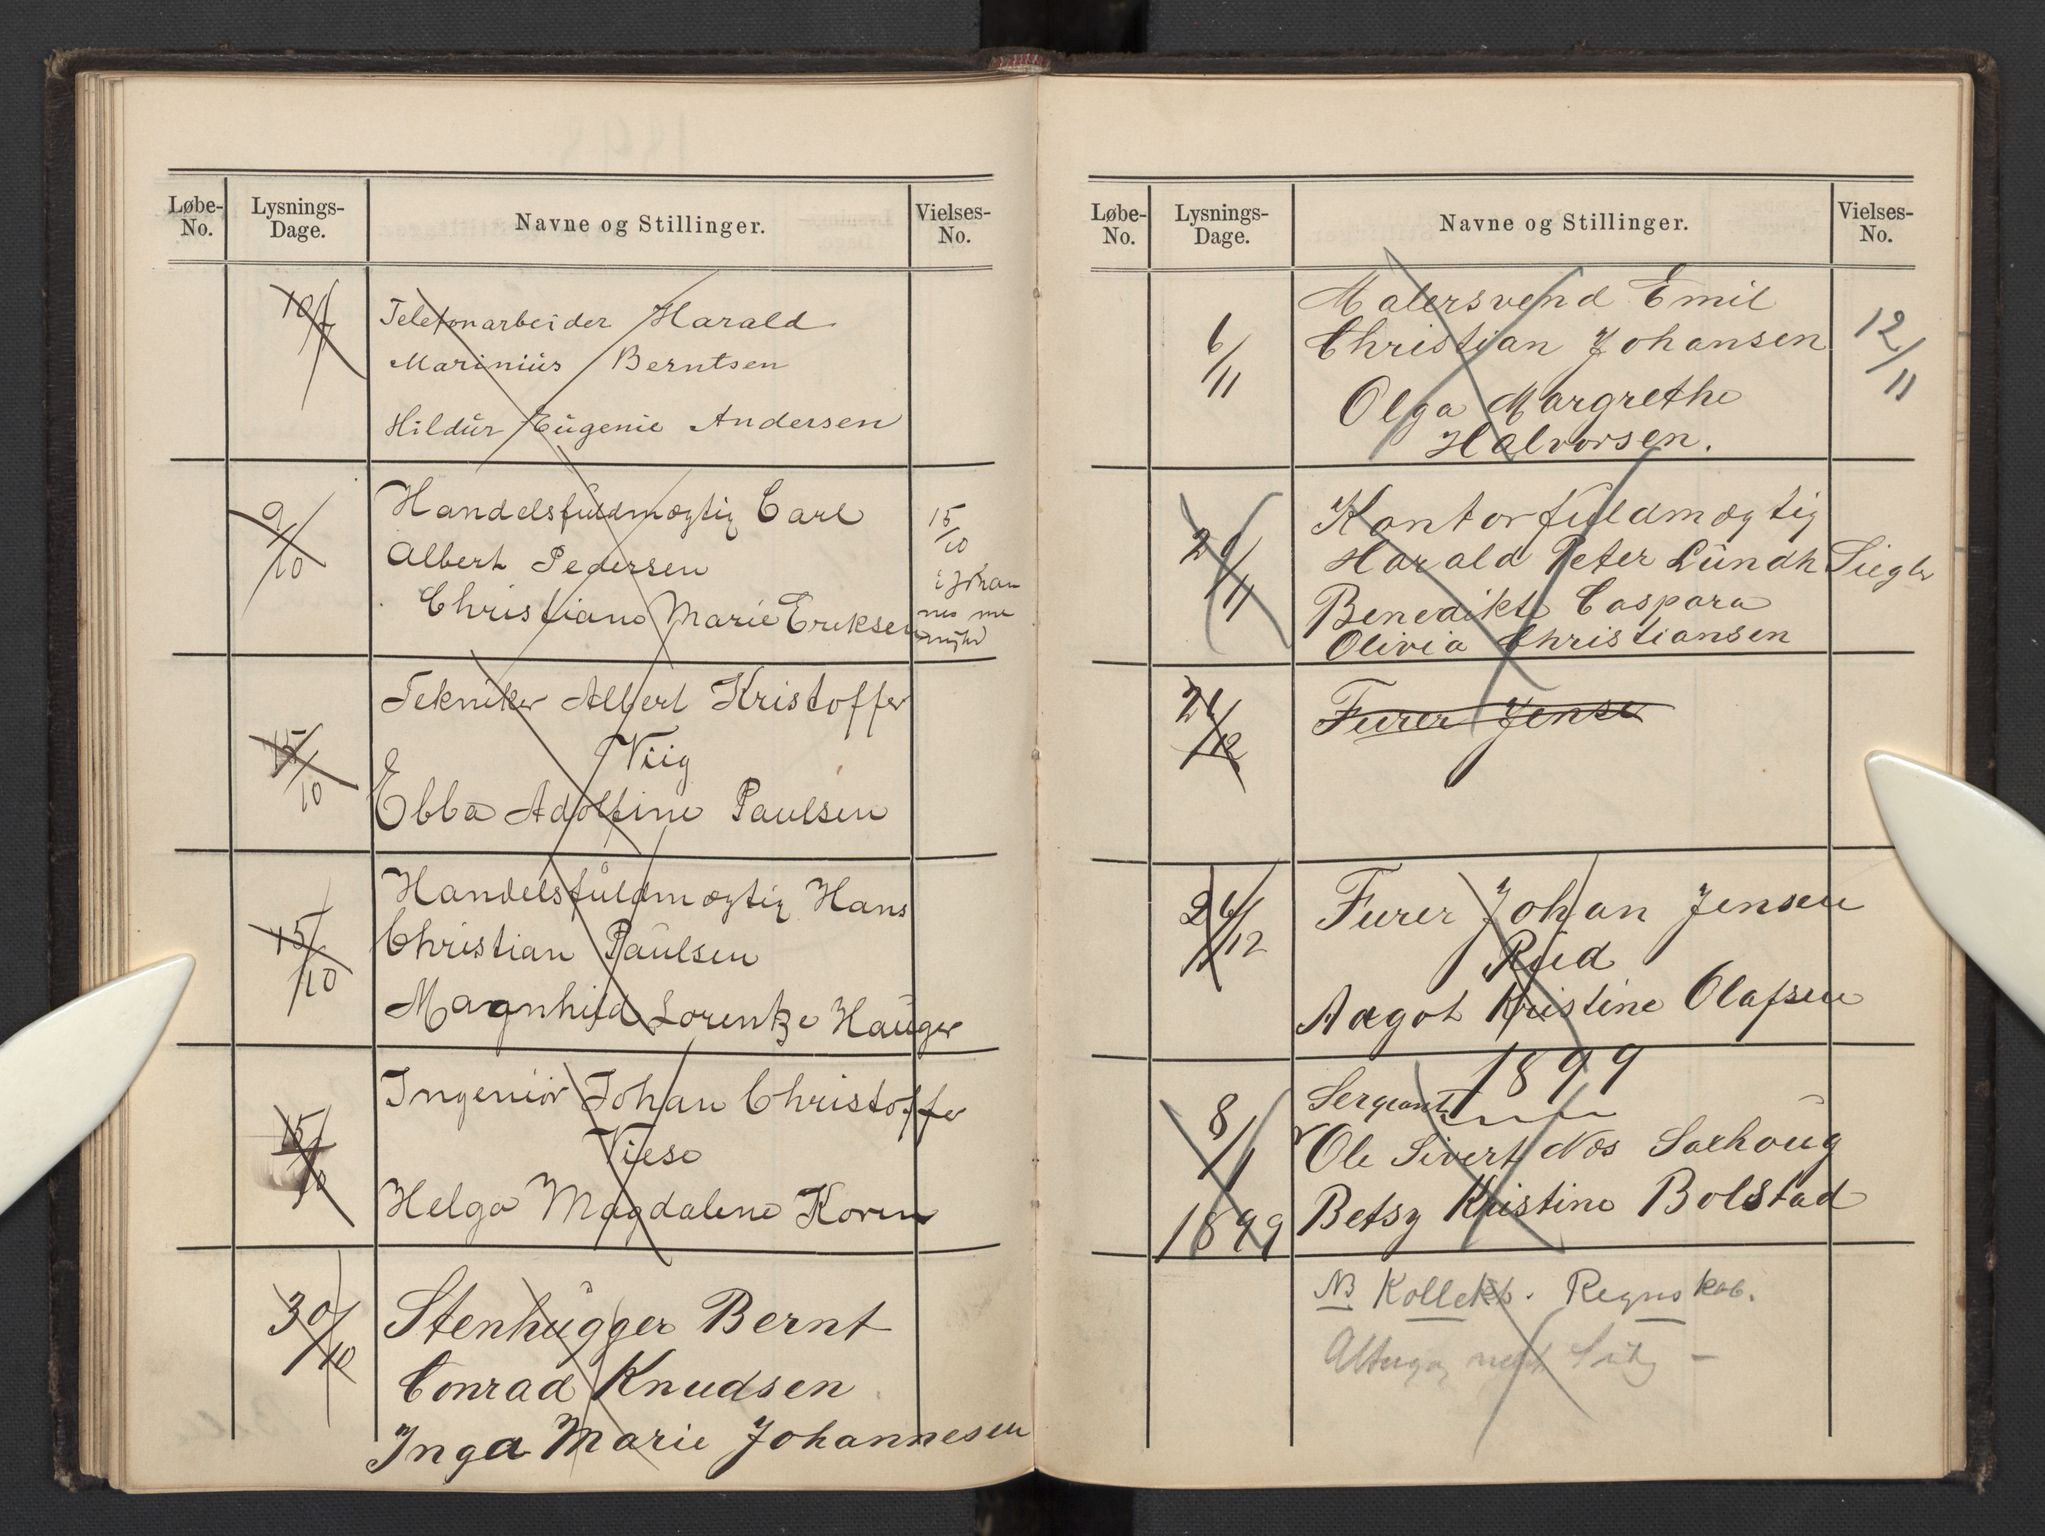 Løbe-No. Lysnings-Dage. Navne og Stillinger. Vielses-No.
10/7 Telefonarbeider Harald
Marinius Berntsen
Hildur Eugenie Andersen
9/10 Handelsfuldmægtig Carl
Albert Pedersen
Christiane Marie Eriksen
15/10
i Johan
nes me
nighd
15/10 Tekniker Albert Kristoffer
Viig
Ebba Adolfine Paulsen
15/10 Handelsfuldmægtig Hans
Christian Paulsen
Magnhild Lorentze Hauger
15/10 Ingeniør Johan Christoffer
Viese
Helga Magdalene Koren
30/10 Stenhugger Bernt
Conrad Knudsen
Inga Marie Johannesen
Løbe-No. Lysnings-Dage. Navne og Stillinger. Vielses-No.
6/11 Malersvend Emil
Christian Johansen 12/11
Olga Margrethe
Halvorsen.
26/11 Kontorfuldmægtig
Harald Peter Lundh
Benedikte Caspara
Olivia Christiansen
26/12 Furer Jense
26/12 Furer Johan Jensen
Rud
Aagot Kristine Olafsen
1899
8/1 1899 Sergeant
Ole Sivert Næs Saxhoug
Betsy Kristine Bolstad
NB Kollekt. Regnskab.